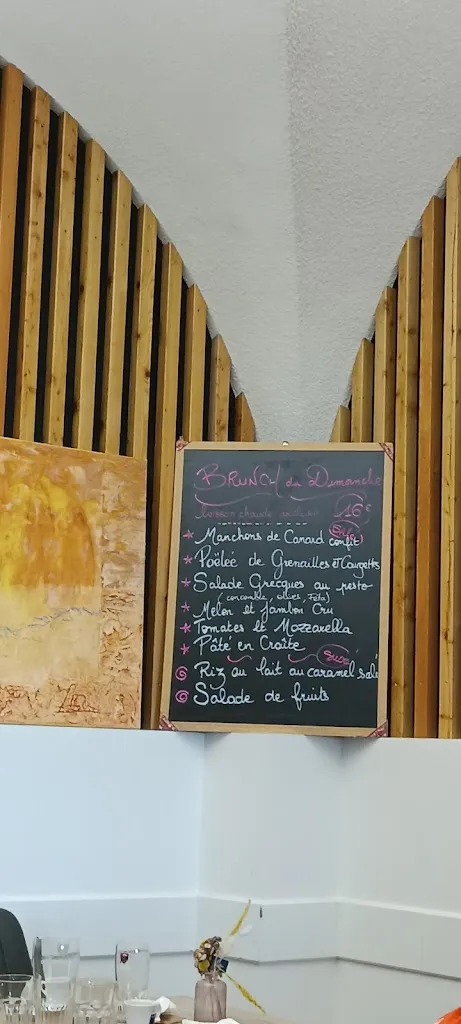 BRUNCH du Dimanche
boisson chaude incluse 16€
Salé
* Manchons de Canard confit
* Poêlée de Grenailles et Courgettes
* Salade Grecques au pesto
(concombre, olives, Féta)
* Melon et Jambon Cru
* Tomates et Mozzarella
* Pâté en Croûte
Sucré
Riz au lait au caramel salé
Salade de fruits